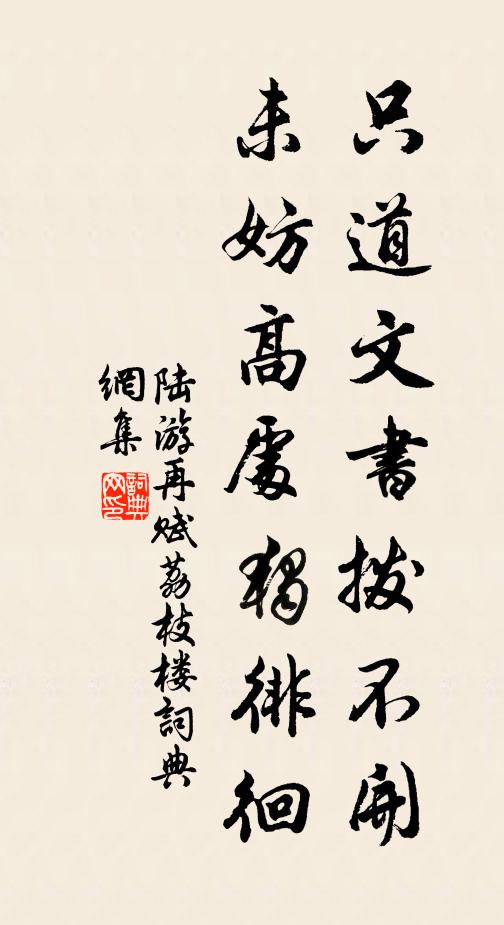 只道文書撥不開
未妨高處獨徘徊
陆游再赋荔枝楼詞典
網集
詞典网印